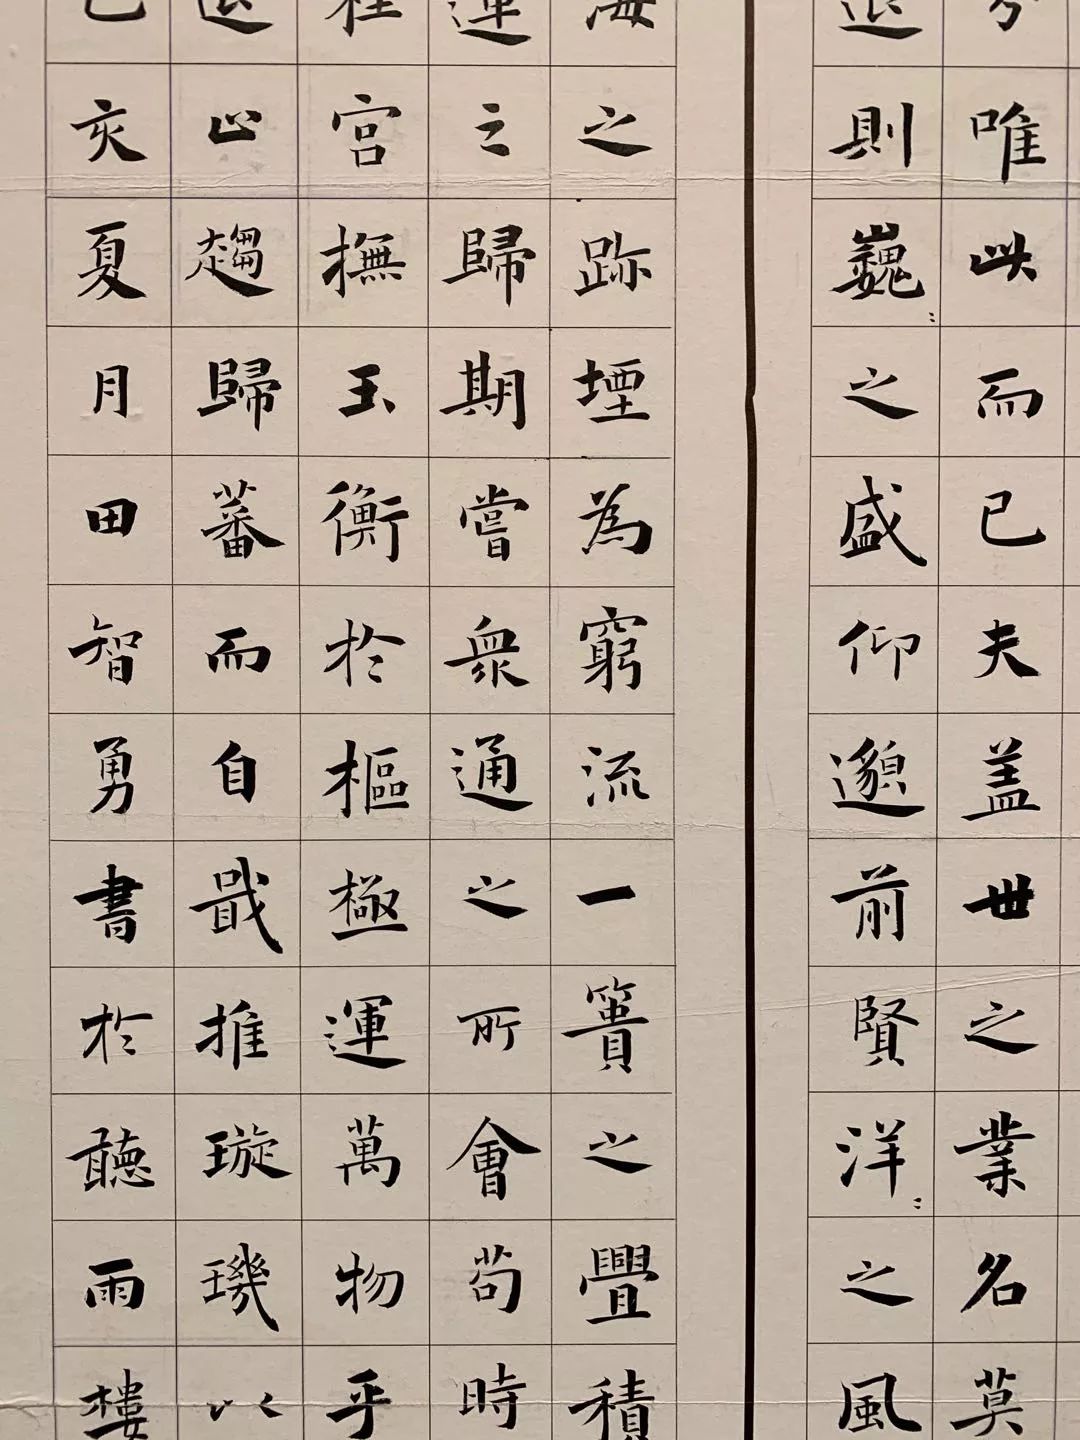 唯此而已夫盖世之業名莫
則巍〻之盛仰邈前賢洋〻之風
海之跡堙為窮流一簣之舋積
運之歸期嘗衆通之所會苟時
宮撫玉衡於樞極運萬物乎
退止趨歸蕃而自戢推璇璣以
已亥夏月田智勇書於聽雨樓